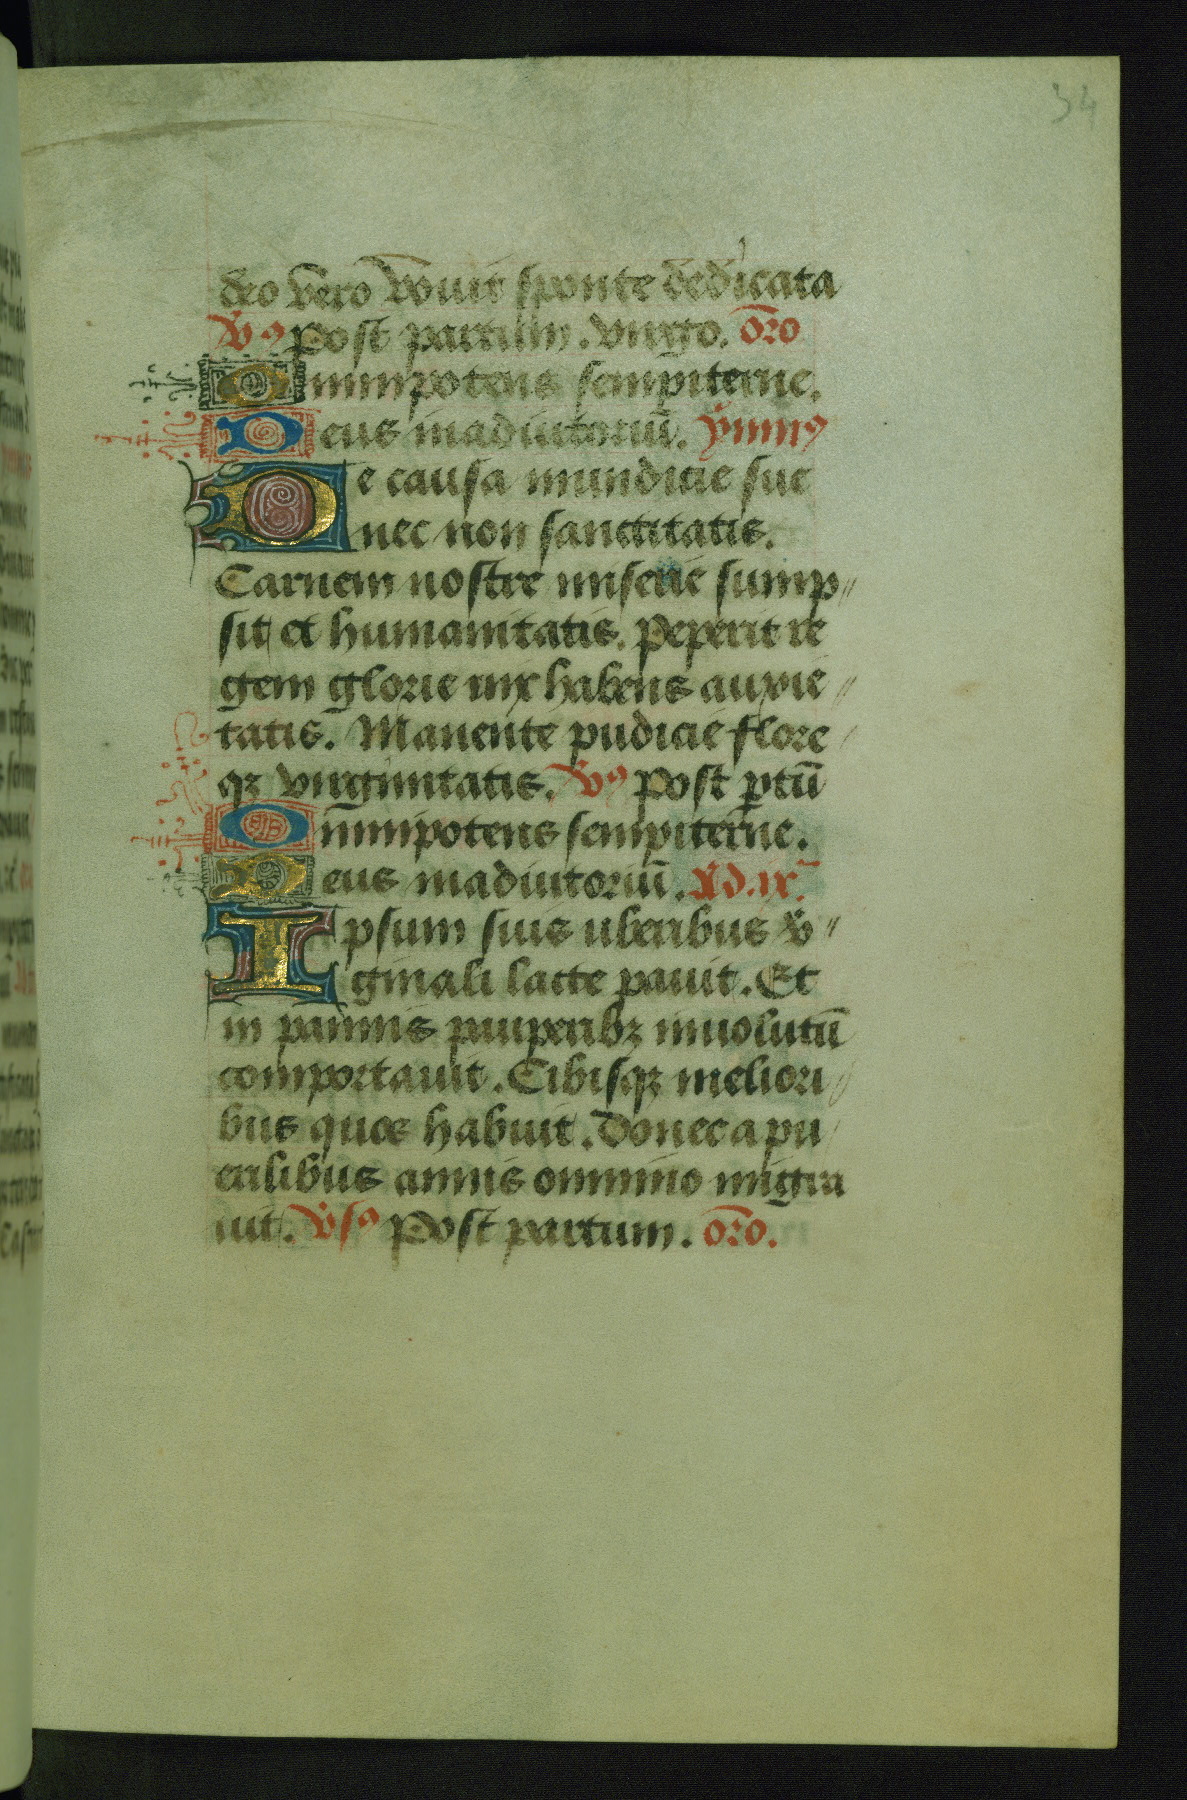 34
deo vero vovit sponte dedicata
v̉s post partum. virgo. or̄o
Omnipotens sempiterne.
Deus inadiutoriū. ẏmnꝰ
De causa mundicie sue
nec non sanctitatis.
Carnem nostre miserie sump〃
sit et humanitatis. Peperit re
gem glorie nix habens auxie〃
tatis. Manente pudicie flore
qꝫ virginitatis. v̉s Post ꝑtū
Omnipotens sempiterne.
Deus inadiutoriū. Ad .ix.
Ipsum suis uberibus v̉〃
ginali lacte pavit. Et
in pannis pauperibꝫ inuolutū
comportauit. Cibisqꝫ meliori
bus quos habuit. Donec a pu
erilibus annis omnino migra
uit. v̉sꝰ Post partum. or̄o.